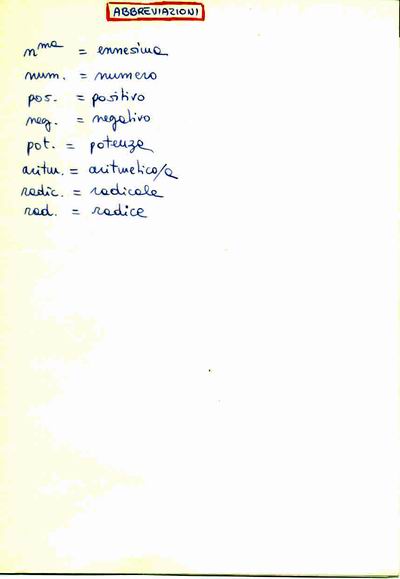 ABBREVIAZIONI
nma = ennesima
num. = numero
pos. = positivo
neg. = negativo
pot. = potenza
aritm. = aritmetico/a
radic. = radicale
rad. = radice